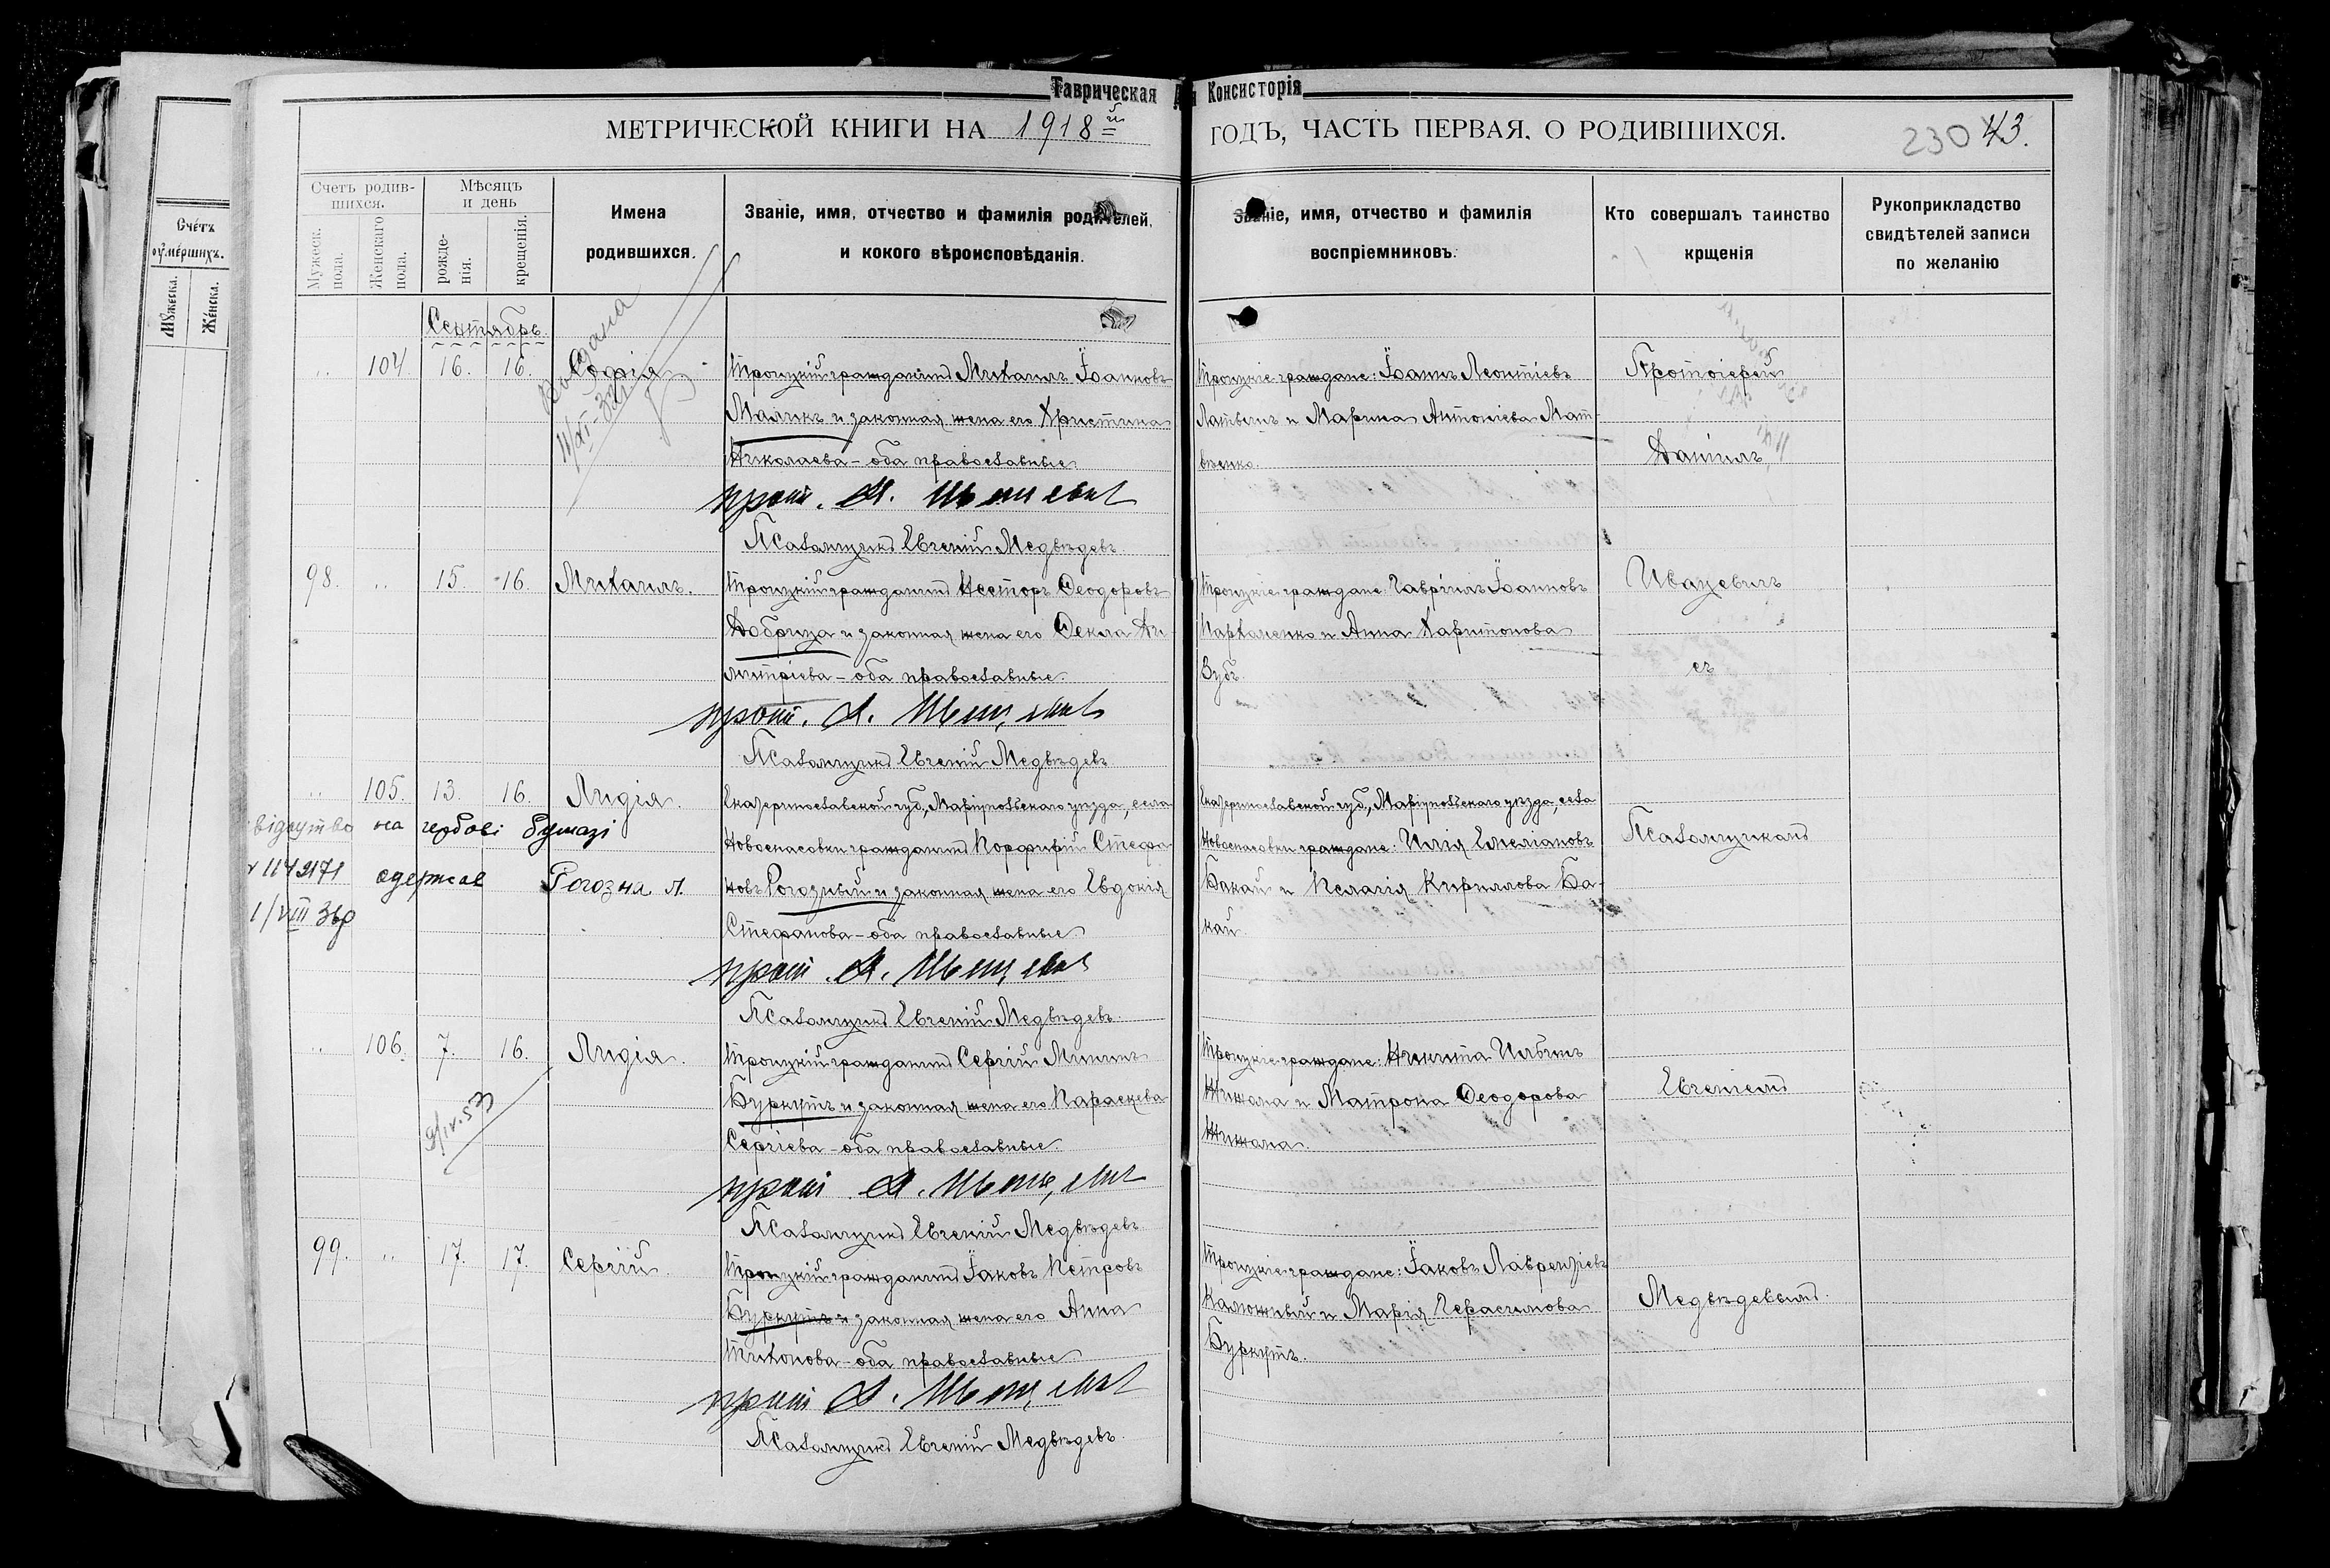 Таврическая
Консисторія
МЕТРИЧЕСКОЙ КНИГИ НА 1918й
ГОДЪ, ЧАСТЬ ПЕРВАЯ, О РОДИВШИХСЯ.
230 43.
Счётъ
оумершихъ.
Мужеска.
Женска.
Счетъ родив-
шихся.
Мужеск.
пола.
Женскаго
пола.
Мѣсяцъ
и день
рожде-
нія.
крещенія.
Имена
родившихся.
Званіе, имя, отчество и фамилія родителей,
и кокого вѣроисповѣданія.
Званіе, имя, отчество и фамилія
воспріемниковъ.
Кто совершалъ таинство
крщенія
Рукоприкладство
свидѣтелей записи
по желанію
Сентябрь.
104. 16. 16. Софія
Троицкій гражданинъ Михаилъ Іоанновъ
Маликъ и законная жена его Христина
Николаева - оба православные.
прот. А.
Псаломщикъ Евгеній Медвѣдевъ.
Троицкіе граждане: Іоаннъ Леонтіевъ
Литвинъ и Марина Антоніева Мат-
вѣенко.
Протоіерей
Даніилъ
11/XI-32
98. 15. 16. Михаилъ.
Троицкій гражданинъ Несторъ Ѳеодоровъ
Добрица и законная жена его Ѳекла Ди-
митріева - оба православные.
прот. А.
Псаломщикъ Евгеній Медвѣдевъ
Троицкіе граждане: Гавріилъ Іоанновъ
Пархоменко и Анна Харитонова
Зубъ.
Ивацевичъ
съ
105. 13. 16. Лидія.
Екатеринославской губ., Маріупольскаго уѣзда, села
Новоспасовки гражданинъ Порфирій Стефа-
новъ Рогозный и законная жена его Евдокія
Стефанова - оба православные.
прот. А.
Псаломщикъ Евгеній Медвѣдевъ.
Екатеринославской губ., Маріупольскаго уѣзда, села
Новоспасовки граждане: Илія Емеліановъ
Бакай и Пелагія Кириллова Ба-
кай.
Псаломщикомъ
на гербові бумазі
1142171 одержав Рогозна Л.
1/VIII 36р
106. 7. 16. Лидія.
Троицкій гражданинъ Сергій Мининъ
Буркутъ и законная жена его Параскева
Сергіева - оба православные.
прот А.
Псаломщикъ Евгеній Медвѣдевъ
Троицкіе граждане: Никита Ильинъ
Жижома и Матрона Ѳеодорова
Жижома.
Евгеніемъ
9/IV.53
99. 17. 17. Сергій.
Троицкій гражданинъ Іаковъ Петровъ
Буркутъ и законная жена его Анна
Тихонова - оба православные
прот А.
Псаломщикъ Евгеній Медвѣдевъ.
Троицкіе граждане: Іаковъ Лаврентіевъ
Калюжный и Марія Герасимова
Буркутъ.
Медвѣдевымъ.